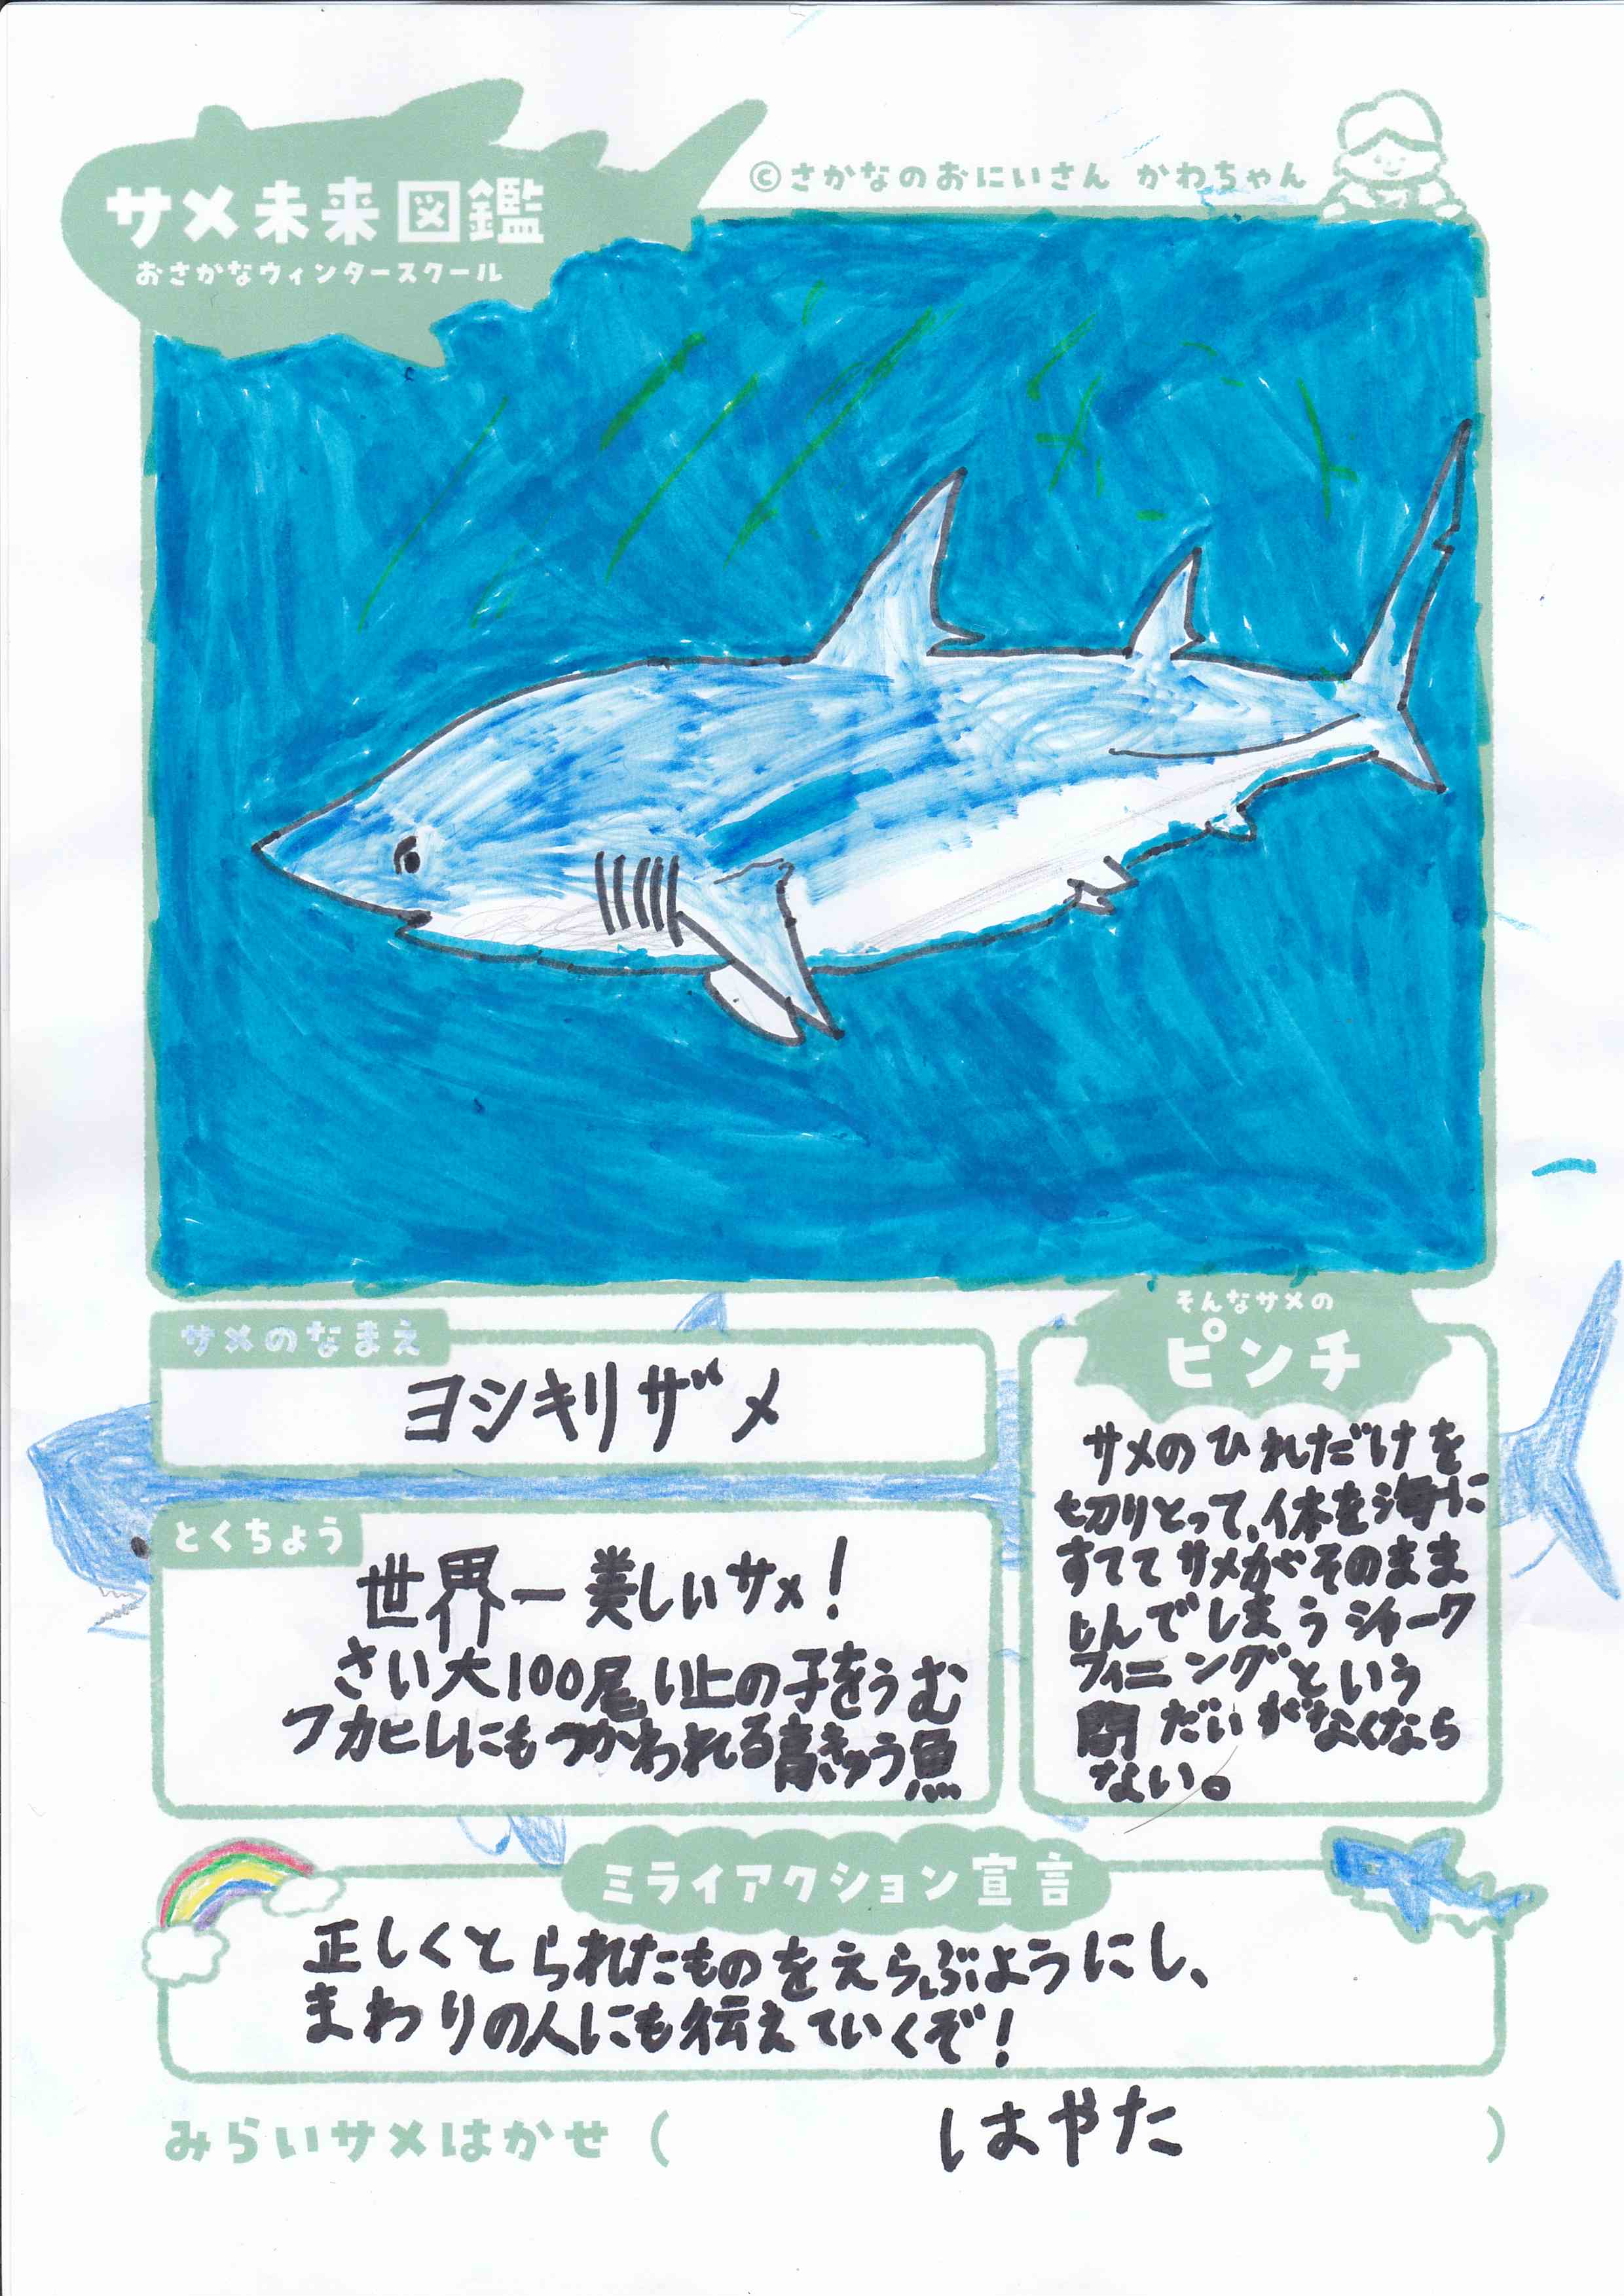 ©さかなのおにいさん かわちゃん
サメ未来図鑑
おさかなウィンタースクール
サメのなまえ
ヨシキリザメ
とくちょう
世界一美しいサメ!
さい大100尾以上の子をうむ
フカヒレにもつかわれる高きゅう魚
そんなサメの
ピンチ
サメのひれだけを
切りとって、体を海に
すててサメがそのまま
しんでしまうシャーク
フィニングという
問だいがなくなら
ない。
ミライアクション宣言
正しくとられたものをえらぶようにし、
まわりの人にも伝えていくぞ!
みらいサメはかせ ( はやた )